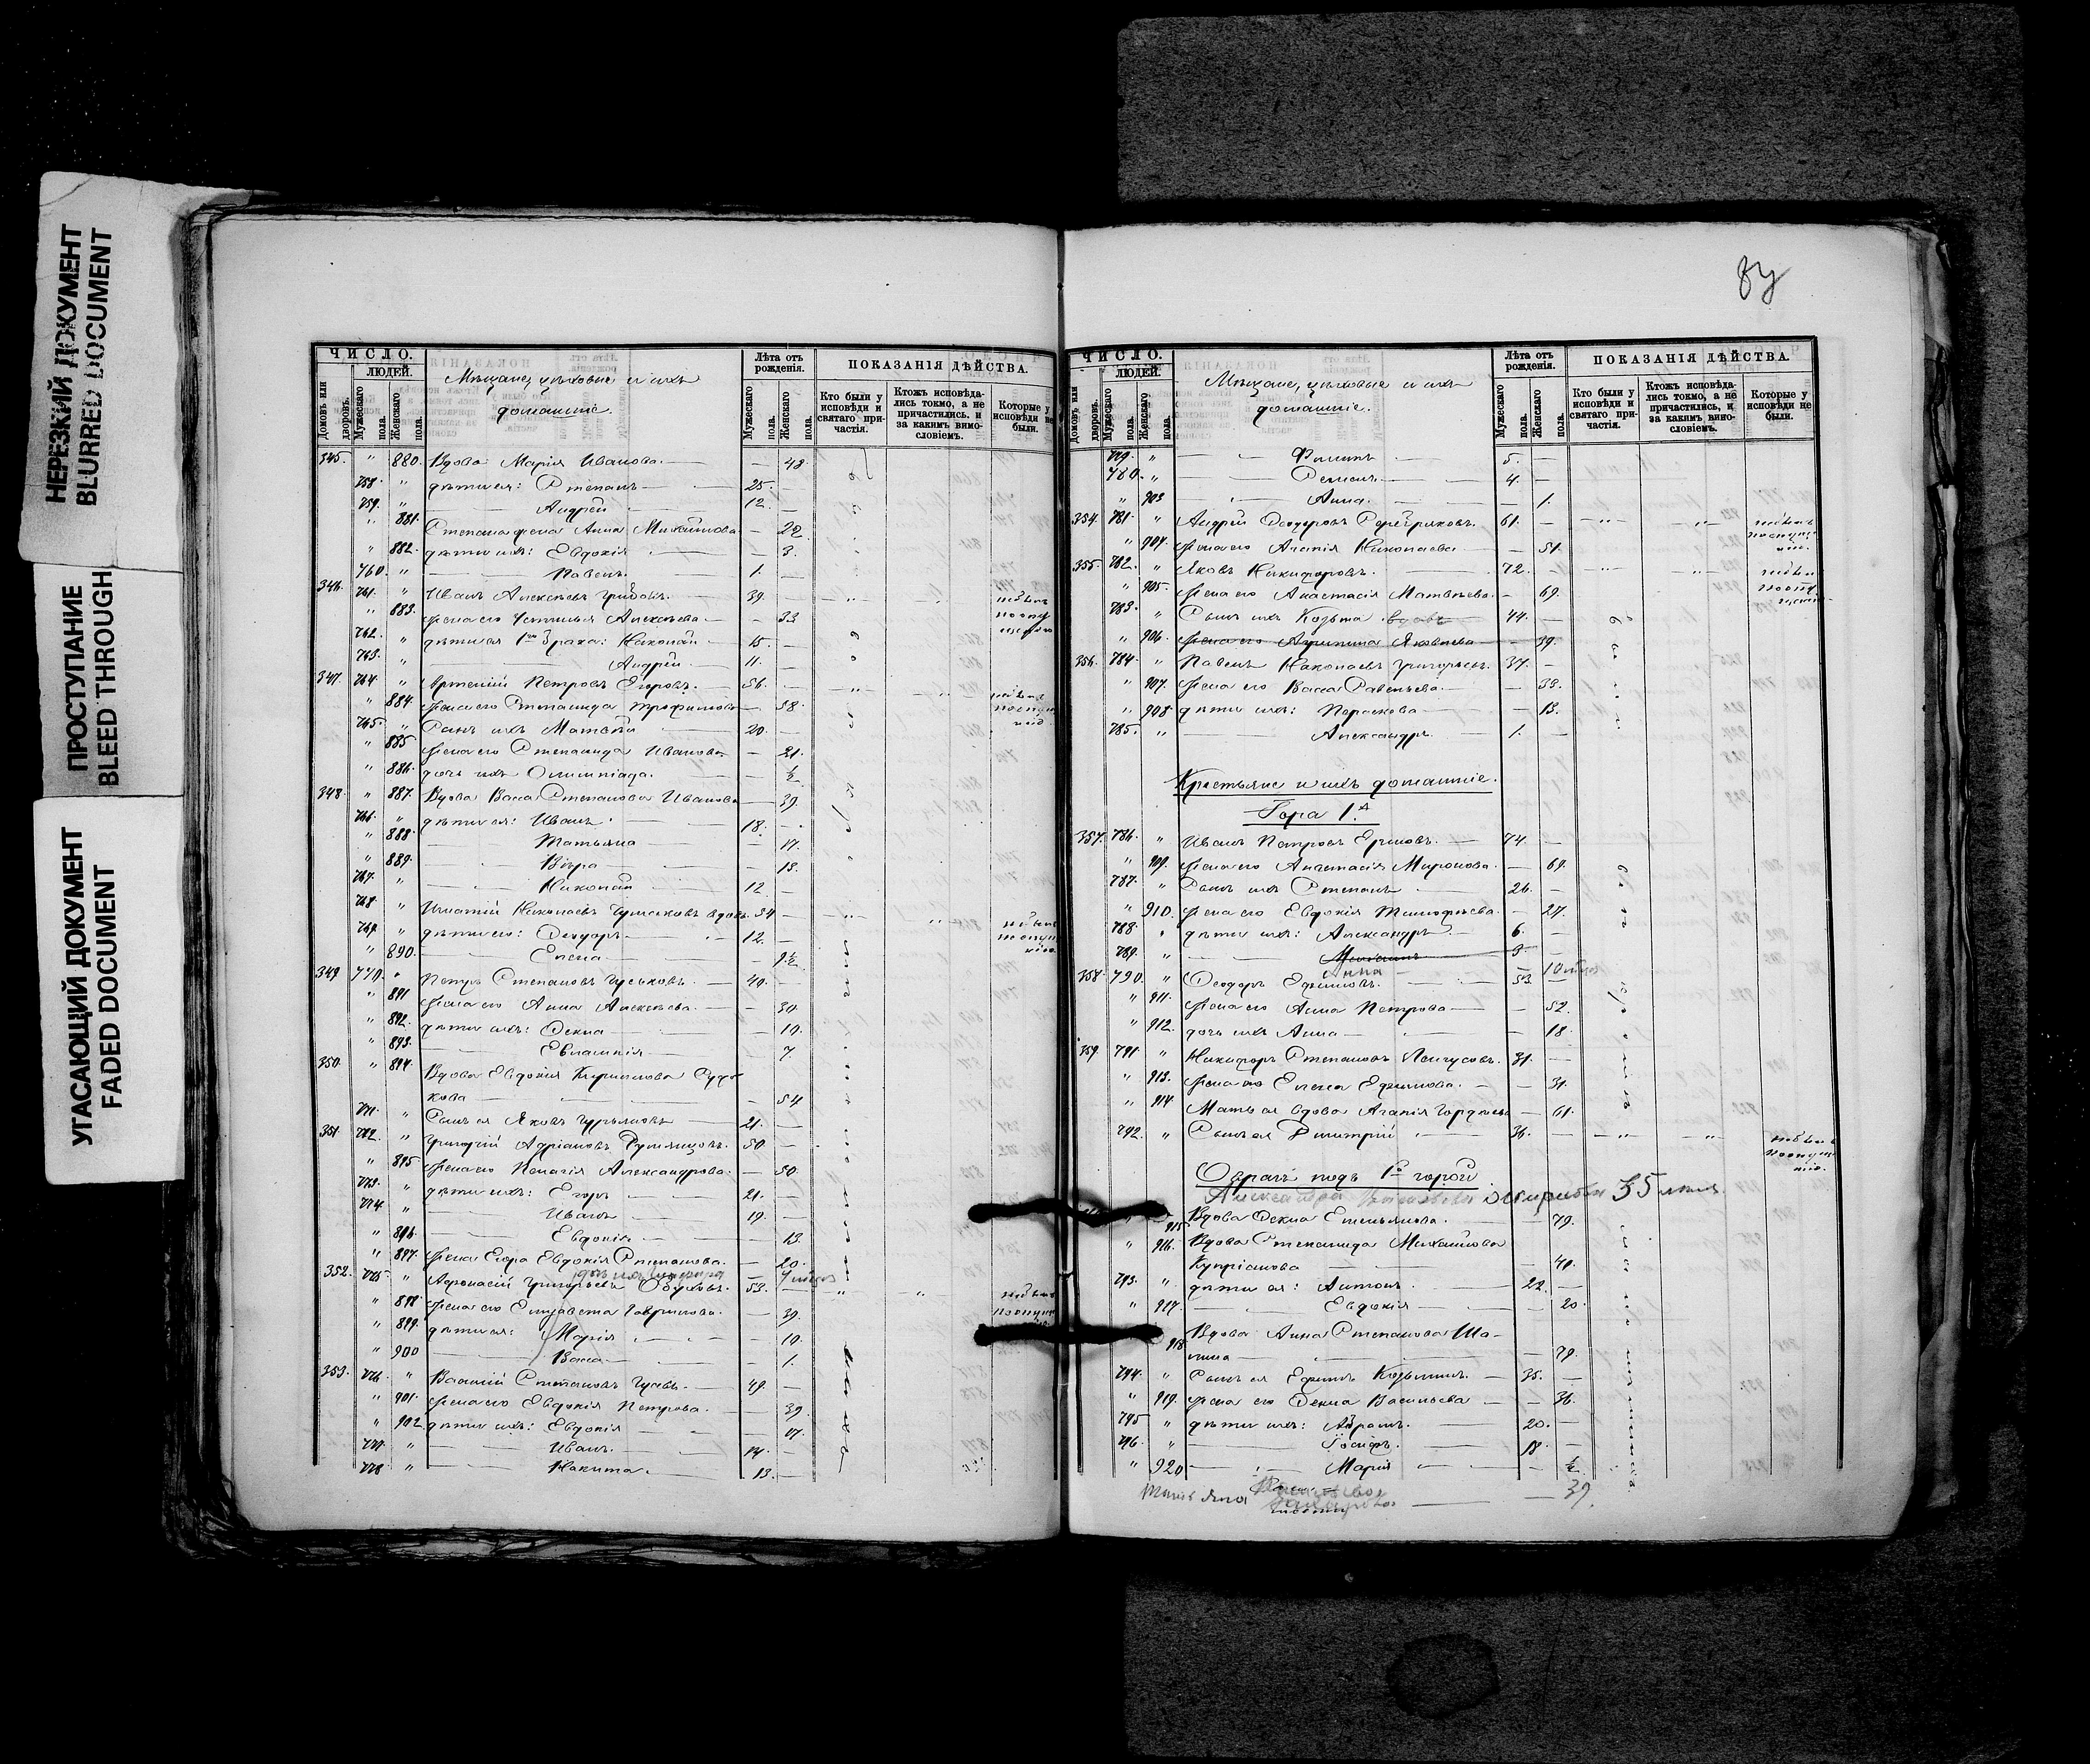 НЕРЕЗКИЙ ДОКУМЕНТ
BLURRED DOCUMENT
ПРОСТУПАНИЕ
BLEED THROUGH
УГАСАЮЩИЙ ДОКУМЕНТ
FADED DOCUMENT
ЧИСЛО.
ЛЮДЕЙ.
Домовъ или дворовъ.
Мужескаго пола.
Женскаго пола.
Мѣщане, цѣховые и ихъ
домашніе.
Лѣта отъ рожденія.
Мужескаго пола.
Женскаго пола.
ПОКАЗАНІЯ ДѢЙСТВА.
Кто были у исповѣди и святаго причастія.
Ктожъ исповѣдались токмо, а не причастились, и за какимъ винословіемъ.
Которые у исповѣди не были.
345. " 880. Вдова Марія Иванова — 48.
758. " дѣти ея: Степанъ 25. —
759. " Андрей 12. —
" 881. Степана жена Анна Михайлова — 22.
" 882. дѣти ихъ: Евдокія — 3.
760. " Павелъ 1. —
346. 761. " Иванъ Алексѣевъ 39. —
" 883. жена его Устинья Алексѣева — 33
762. " дѣти ея 1го брака: Николай 15. —
763. " Андрей 11. —
347. 764. " Артемій Петровъ Егоровъ. 56. —
" 884. жена его Степанида Трофимова — 58.
765. " Сынъ ихъ Матвѣй 20. —
" 885 жена его Степанида Иванова — 21.
" 886. дочь ихъ Олимпіада. — ½
348. " 887. Вдова Васса Степанова Иванова — 39.
766. " дѣти ея: Иванъ 18. —
" 888. Татьяна — 17.
" 889. Вѣра — 15.
767. " Николай 12 —
768. " Игнатій Николаевъ вдовъ 34 —
769. " дѣти его: Ѳеодоръ 12. —
" 890. Елена — 9½
349 770. " Петръ Степановъ Гуськовъ. 40. —
" 891 жена его Анна Алексѣева. — 30.
" 892. дѣти ихъ: Ѳекла — 10.
" 893. Евлампія — 7.
350. " 894. Вдова Евдокія Кириллова
кова — 54
771. " Сынъ ея Яковъ Гурьяновъ 21. —
351. 772. " Григорій Адріановъ Румянцовъ. 50 —
" 895. жена его Пелагія Александрова. — 50.
773. " дѣти ихъ: Егоръ 21. —
774. " Иванъ 19. —
" 896. Евдокія — 13.
" 897. жена Егора Евдокія Степанова. — 20.
352. 775. " Афанасій Григорьевъ Обуховъ. 53. —
" 898. жена его Елизавета Гаврилова. — 39.
" 899. дѣти ея: Марія — 10.
" 900 Васса — 1.
353. 776. " Василій Степановъ Гусевъ. 49. —
" 901. жена его Евдокія Петрова. — 39.
" 902. дѣти ихъ: Евдокія — 17.
777. " Иванъ. 14. —
778. " Никита. 13. —
ЧИСЛО.
ЛЮДЕЙ.
Домовъ или дворовъ.
Мужескаго пола.
Женскаго пола.
Мѣщане, цѣховые и ихъ
домашніе.
Лѣта отъ рожденія.
Мужескаго пола.
Женскаго пола.
ПОКАЗАНІЯ ДѢЙСТВА.
Кто были у исповѣди и святаго причастія.
Ктожъ исповѣдались токмо, а не причастились, и за какимъ винословіемъ.
Которые у исповѣди не были.
779. " Филипъ 5. —
780. " Семенъ 4. —
" 903 Анна — 1.
354. 781. " Андрей Ѳеодоровъ Серебряковъ. 61. —
" 904. жена его Агапія Николаева — 51.
355. 782. " Яковъ Никифоровъ. 72. —
" 905. жена его Анастасія Матвѣева. — 69.
783. " Сынъ ихъ Козьма вдовъ 44. —
" 906. жена его Агрипина Яковлева — 39.
356. 784. " Павелъ Николаевъ Григорьевъ. 37. —
" 907. жена его Васса Савельева — 33.
" 908 дѣти ихъ: Параскева — 13.
785. " Александръ 1. —
Крестьяне и ихъ домашніе.
Гора 1.я
357. 786. " Иванъ Петровъ Ермовъ. 74. —
" 909. жена его Анастасія Миронова. — 69.
787. " Сынъ ихъ Степанъ 26. —
" 910. жена его Евдокія Тимофѣева. — 27.
788. " дѣти ихъ: Александръ 6. —
789. " 3. —
Анна
358. 790. " Ѳеодоръ Ефимовъ. 53. —
" 911. жена его Анна Петрова — 52.
" 912. дочь ихъ Анна — 18.
359. 791 " Никифоръ Степановъ 31. —
" 913. жена его Елена Ефимова. — 31.
" 914. Мать ея вдова Агапія Гордѣева — 61.
792. " Сынъ ея Дмитрій 36. —
Оврагъ подъ 1й горой
Александра 35 лѣтъ
915. Вдова Ѳекла Емельянова. — 79.
" 916. Вдова Степанида Михайлова
Купріанова — 40.
793. " дѣти ея: Антонъ 22. —
" 917. Евдокія — 20.
918. Вдова Анна Степанова Ша-
нина — 79.
794. " Сынъ ея Ефимъ Козьминъ. 35. —
" 919. жена его Ѳекла Васильева — 36.
795 " дѣти ихъ: Абрамъ. 20. —
796. " Іосифъ. 18. —
" 920 Марія — ½
39.